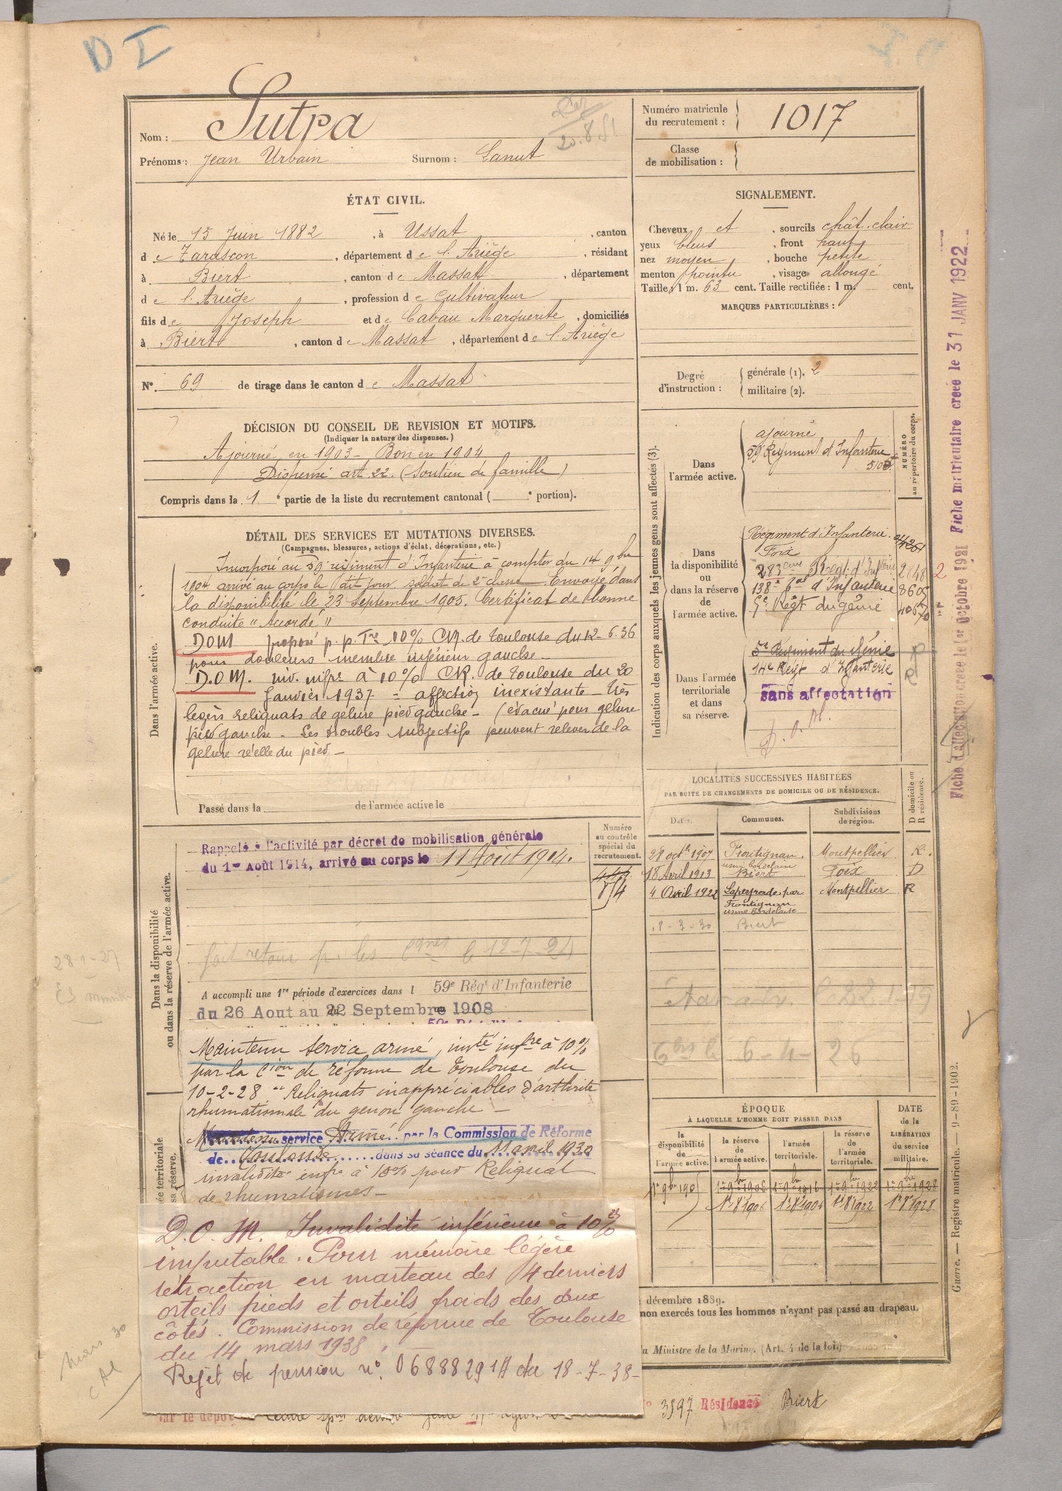 D I
Nom : Sutra
Prénoms : Jean Urbain Surnom : Canut
20.8.51
Numéro matricule du recrutement : 1017
Classe de mobilisation :
ÉTAT CIVIL.
Né le 15 Juin 1882, à Ussat, canton
de Tarascon, département de l'Ariège, résidant
à Biert, canton de Massat, département
de l'Ariège, profession de Cultivateur
fils de Joseph et de Cabau Marguerite, domiciliés
à Biert, canton de Massat, département de l'Ariège
N° 69 de tirage dans le canton de Massat
SIGNALEMENT.
Cheveux et, sourcils chât. clair
yeux bleus, front haut
nez moyen, bouche petite
menton pointu, visage allongé
Taille : 1 m. 63 cent. Taille rectifiée : 1 m. cent.
MARQUES PARTICULIÈRES :
Degré d'instruction : générale (1). 2
militaire (2).
DÉCISION DU CONSEIL DE REVISION ET MOTIFS.
(Indiquer la nature des dispenses.)
Ajourné en 1903 - Bon en 1904
Dispensé art. 22 (Soutien de famille)
Compris dans la 1e partie de la liste du recrutement cantonal ( e portion).
DÉTAIL DES SERVICES ET MUTATIONS DIVERSES.
(Campagnes, blessures, actions d'éclat, décorations, etc.)
Dans l'armée active.
Incorporé au 59e régiment d'Infanterie à compter du 14 9bre
1904 arrivé au corps le dit jour soldat de 2e classe. Envoyé dans
la disponibilité le 23 Septembre 1905. Certificat de bonne
conduite "Accordé"
DOM proposé p. p. Tre 10% CR. de Toulouse du 12-6.36
pour douleurs membre inférieur gauche.
D.O.M. inv. infre à 10% CR. de Toulouse du 20
Janvier 1937 - affection inexistante - très
légers reliquats de gelure pied gauche - (évacué pour gelure
pied gauche - Les troubles subjectifs peuvent relever de la
gelure réelle du pied -
Passé dans la de l'armée active le
Indication des corps auxquels les jeunes gens sont affectés (3).
NUMÉRO au répertoire du corps.
Dans l'armée active.
ajourné
59 Régiment d'Infanterie
Dans la disponibilité ou dans la réserve de l'armée active.
Régiment d'Infanterie
Foix
283eme Regt d'Infrie 2148
138e Rgt d'Infanterie
5e Régt du génie
Dans l'armée territoriale et dans sa réserve.
5e Régiment du Génie
14e Régt d'Infanterie
sans affectation
Fiche matriculaire créée le 31 JANV 1922
Fiche d'affectation créée le 1er octobre 1921
LOCALITÉS SUCCESSIVES HABITÉES
PAR SUITE DE CHANGEMENTS DE DOMICILE OU DE RÉSIDENCE.
Dates. Communes. Subdivisions de région. D domicile ou R résidence.
28 octbre 1907 Frontignan usine bordelaise Montpellier R.
18 Avril 1913 Biert Foix D
4 Avril 1922 Lapeyrade par Frontignan usine Bordelaise Montpellier R
18-3-30 Biert
6-4-26
Dans la disponibilité ou dans la réserve de l'armée active.
Numéro au contrôle spécial du recrutement.
Rappelé à l'activité par décret de mobilisation générale
du 1er Août 1914, arrivé au corps le 11 Août 1914.
A accompli une 1re période d'exercices dans l 59e Régt d'Infanterie
du 26 Aout au 22 Septembre 1908
Maintenu service armé, invté infre à 10%
par la Cion de réforme de Toulouse du
10-2-28 "Reliquats inappréciables d'arthrite
rhumatismale du genou gauche -
Maintenu service Armé par la Commission de Réforme
de Toulouse dans sa séance du 11 avril 1930
invalidité infre à 10% pour Reliquat
de rhumatismes -
D.O.M. Invalidité inférieure à 10%
imputable. Pour mémoire légère
rétraction en marteau des 4 derniers
orteils pieds et orteils froids des deux
côtés. Commission de réforme de Toulouse
du 14 mars 1938.
Rejet de pension n°. 0688829 du 18-7-38-
ÉPOQUE
À LAQUELLE L'HOMME DOIT PASSER DANS
la disponibilité de l'armée active. la réserve de l'armée active. l'armée territoriale. la réserve de l'armée territoriale.
DATE de la LIBÉRATION du service militaire.
décembre 1889.
non exercés tous les hommes n'ayant pas passé au drapeau.
Ministre de la Marine. (Art. 4 de la loi.)
3597 Résidence Biert
Guerre. — Registre matricule. — 9-89-1902.